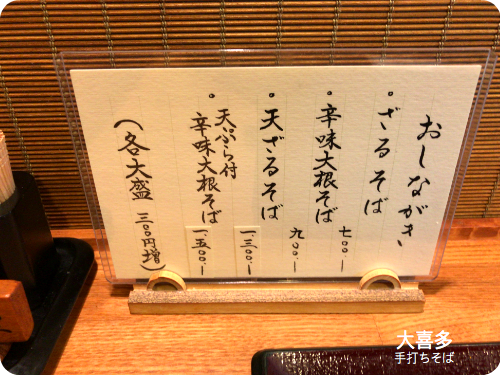 おしながき
・ざるそば 七〇〇.ー
・辛味大根そば 九〇〇.ー
・天ざるそば 一三〇〇.ー
・天ぷら付
辛味大根そば 一五〇〇.ー
(各大盛 三〇〇円増)
大喜多
手打ちそば